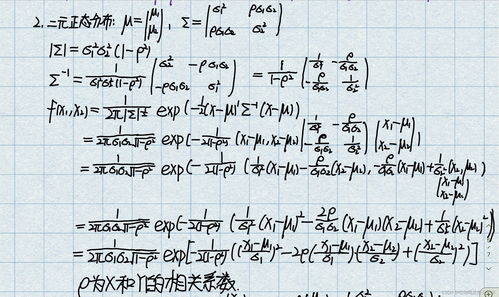 2. 二元正态分布: μ=(μ₁ μ₂), Σ=(σ₁² ρσ₁σ₂ ρσ₁σ₂ σ₂²)
|Σ| = σ₁²σ₂²(1-ρ²)
Σ⁻¹ = 1/(σ₁²σ₂²(1-ρ²)) (σ₂² -ρσ₁σ₂ -ρσ₁σ₂ σ₁²) = 1/(1-ρ²) (1/σ₁² -ρ/(σ₁σ₂) -ρ/(σ₁σ₂) 1/σ₂²)
f(x₁,x₂) = 1/(2π|Σ|^½) exp(-½(x-μ)'Σ⁻¹(x-μ))
= 1/(2πσ₁σ₂√(1-ρ²)) exp(-1/(2(1-ρ²)) (x₁-μ₁, x₂-μ₂) (1/σ₁² -ρ/(σ₁σ₂) -ρ/(σ₁σ₂) 1/σ₂²) (x₁-μ₁ x₂-μ₂))
= 1/(2πσ₁σ₂√(1-ρ²)) exp(-1/(2(1-ρ²)) (1/σ₁²(x₁-μ₁)-ρ/(σ₁σ₂)(x₂-μ₂), -ρ/(σ₁σ₂)(x₁-μ₁)+1/σ₂²(x₂-μ₂)) (x₁-μ₁ x₂-μ₂)
= 1/(2πσ₁σ₂√(1-ρ²)) exp(-1/(2(1-ρ²)) (1/σ₁²(x₁-μ₁)²-2ρ/(σ₁σ₂)(x₁-μ₁)(x₂-μ₂)+1/σ₂²(x₂-μ₂)²))
= 1/(2πσ₁σ₂√(1-ρ²)) exp[-1/(2(1-ρ²)) (((x₁-μ₁)/σ₁)²-2ρ((x₁-μ₁)/σ₁)((x₂-μ₂)/σ₂)+((x₂-μ₂)/σ₂)²)]
ρ为X和Y的相关系数.